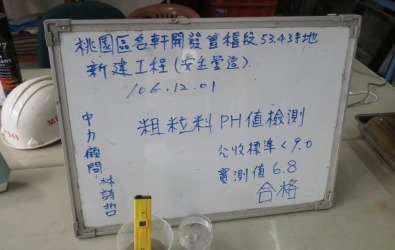 桃園區名軒開發寶稽段53.43等地
新建工程(安全營造)
106.12.01
粗粒料PH值檢測
允收標準<9.0
實測值6.8
合格
中力顧問
林詩哲